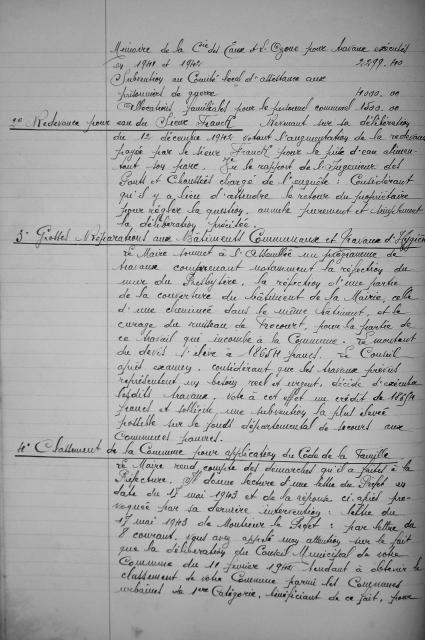 Mémoire de la Cie des Eaux et d'Ozone pour travaux exécutés
en 1941 et 1942 2299.40
Subvention au Comité local d'assistance aux
prisonniers de guerre 4000.00
Allocations familiales pour le personnel communal 1500.00
2° Redevance pour eau du Sieur Franck Revenant sur sa délibération
du 12 décembre 1942 votant l'augmentation de la redevance
payée par le sieur Franck pour la prise d'eau alimen-
tant son parc. Vu le rapport de l'Ingénieur des
Ponts et Chaussées chargé de l'enquête : Considérant
qu'il y a lieu d'attendre le retour du propriétaire
pour régler la question, annule purement et simplement
la délibération précitée.
3° Grosses Réparations aux Bâtiments Communaux et Travaux d'Hygiène
Le Maire soumet à l'Assemblée un programme de
travaux comprenant notamment la réfection du
mur du Presbytère, la réfection d'une partie
de la couverture du bâtiment de la Mairie, celle
d'une cheminée dans le même bâtiment, et le
curage du ruisseau de pour la partie de
ce travail qui incombe à la Commune. Le montant
du devis s'élève à francs. Le Conseil
après examen, considérant que les travaux prévus
représentent un besoin réel et urgent, décide d'exécuter
lesdits travaux, vote à cet effet un crédit de
francs et sollicite une subvention la plus élevée
possible sur le fonds départemental de secours aux
Communes pauvres.
4° Classement de la Commune pour application du Code de la Famille
Le Maire rend compte des démarches qu'il a faites à la
Préfecture. Il donne lecture d'une lettre du Préfet en
date du mai 1943 et de la réponse ci-après pro-
voquée par sa dernière intervention : lettre du
17 mai 1943 de Monsieur le Préfet : par lettre du
8 courant, vous avez appelé mon attention sur le fait
que la délibération du Conseil Municipal de votre
Commune du février 1942 tendant à obtenir le
classement de votre Commune parmi les Communes
urbaines de 1ère Catégorie, bénéficiant de ce fait, pour